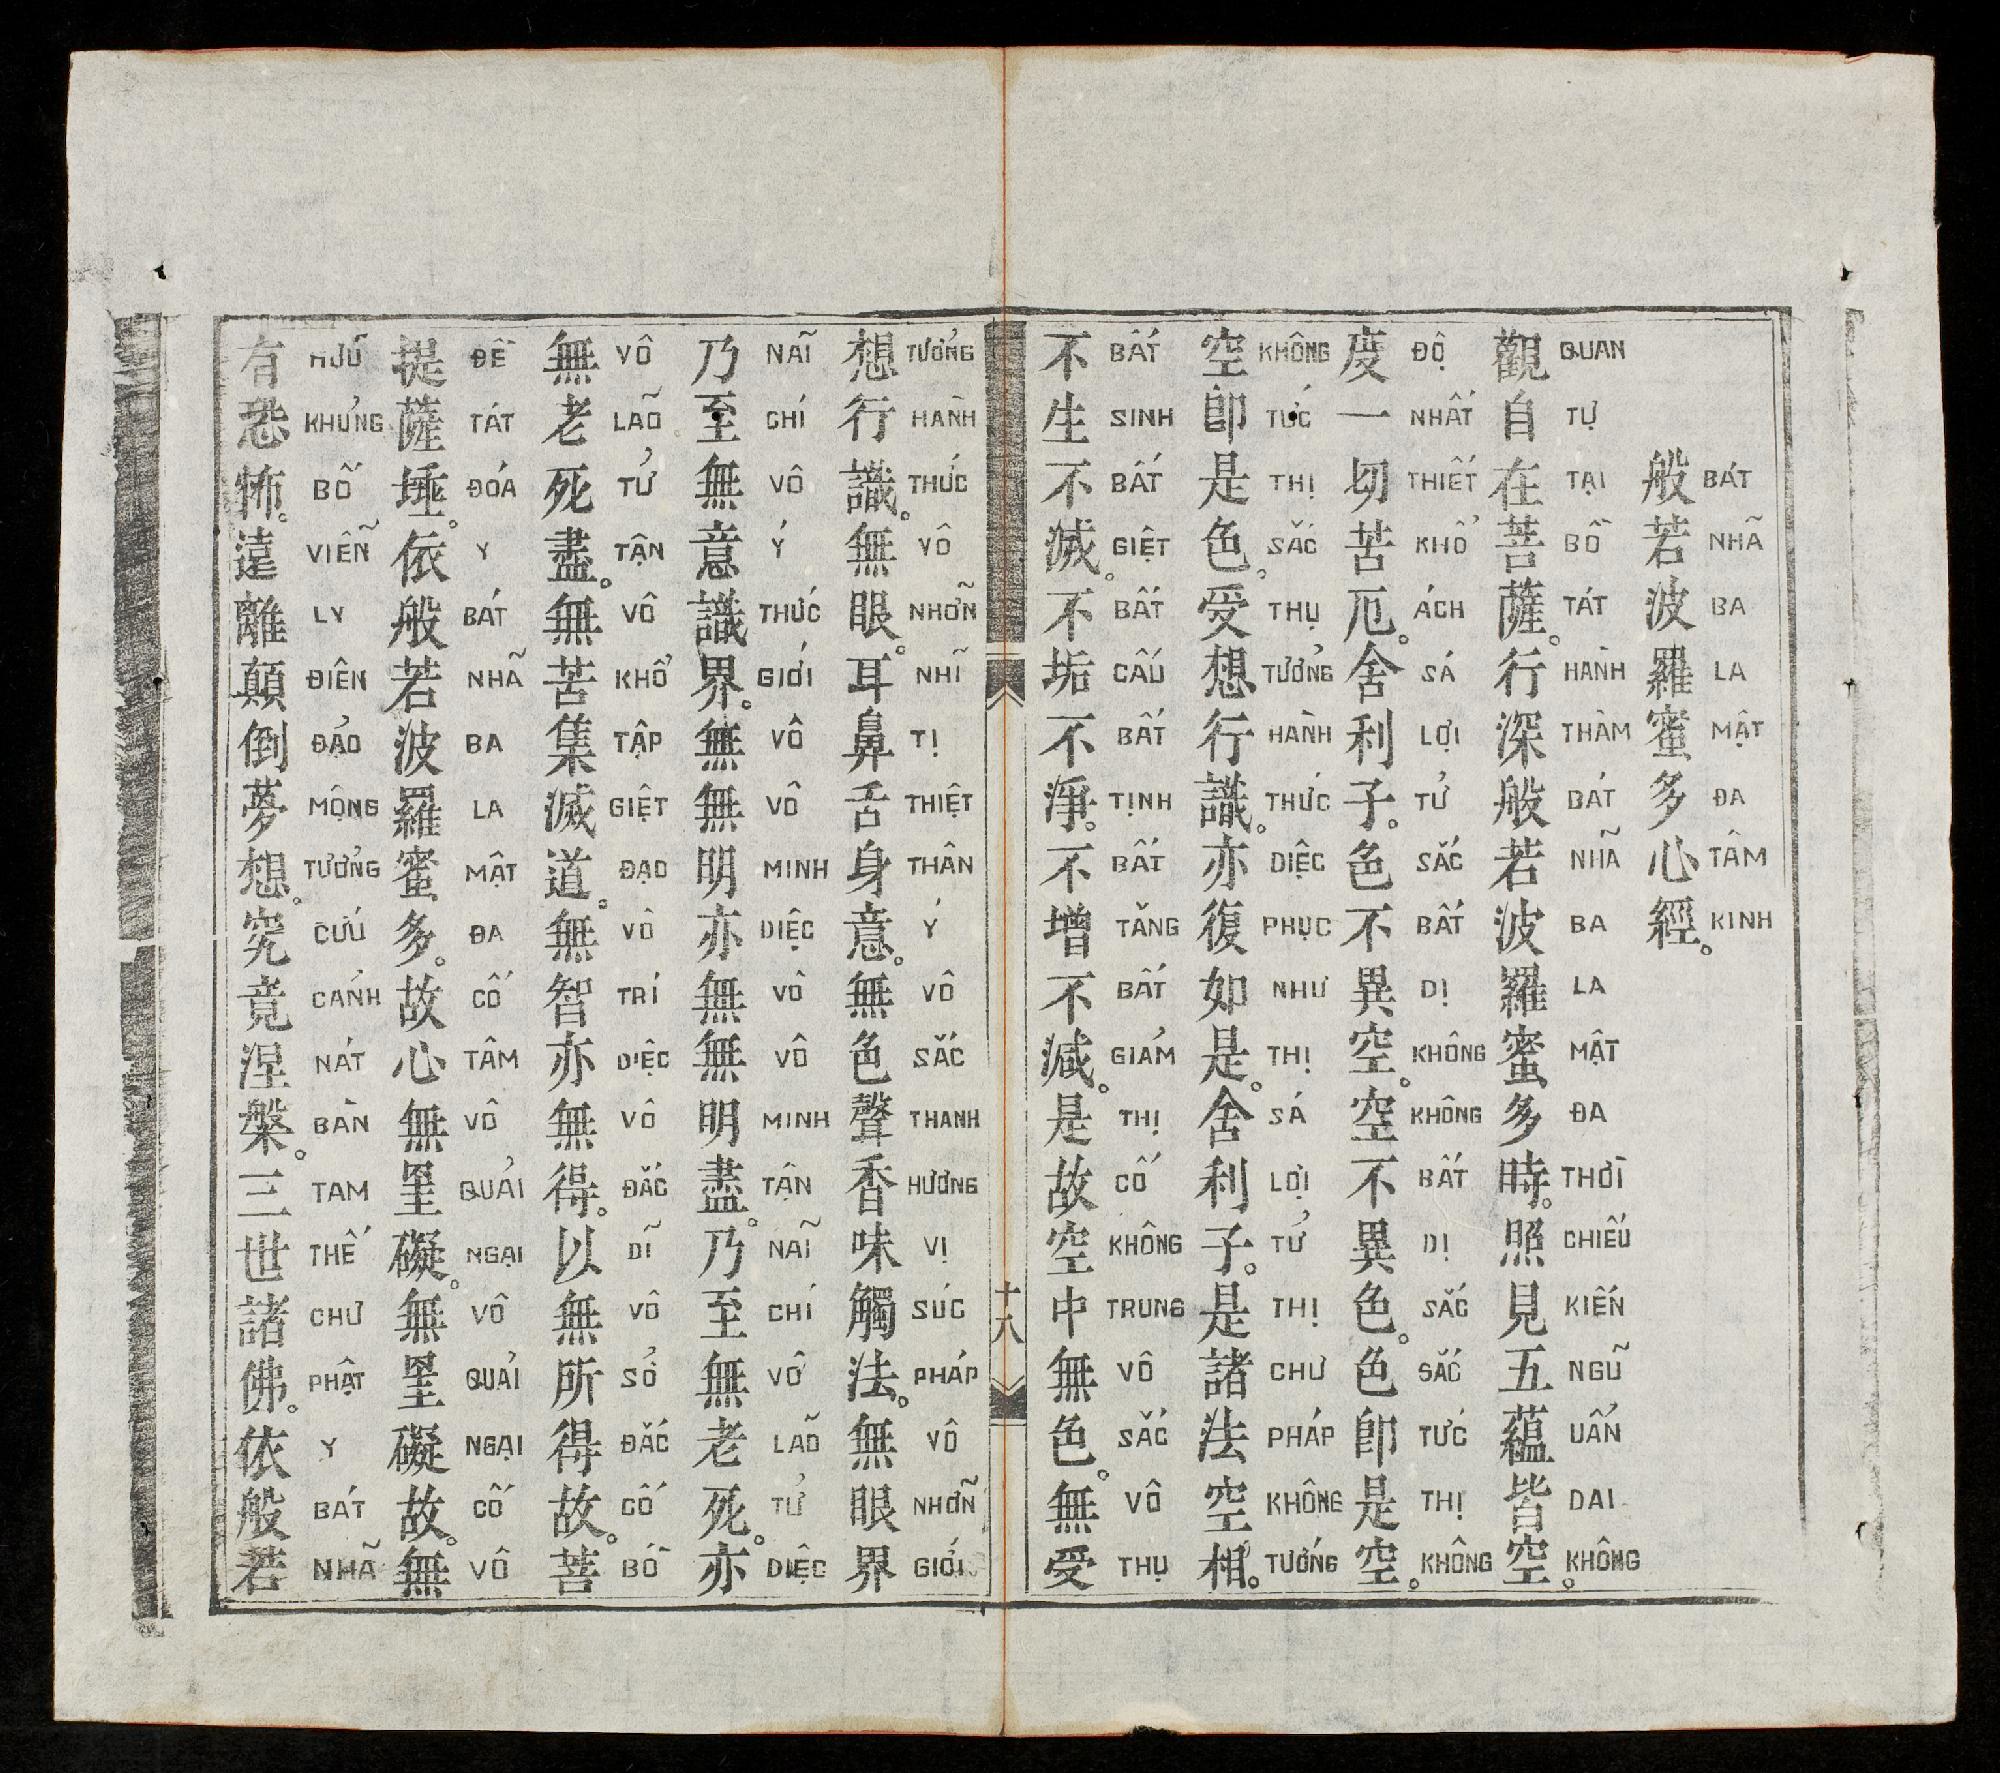 般若波羅蜜多心經。
BÁT NHÃ BA LA MẬT ĐA TÂM KINH
觀自在菩薩。行深般若波羅蜜多時。照見五蘊皆空。
QUAN TỰ TẠI BỒ TÁT HÀNH THÀM BÁT NHÃ BA LA MẬT ĐA THỜI CHIẾU KIẾN NGŨ UẨN DAI KHÔNG
度一切苦厄。舍利子。色不異空。空不異色。色即是空。
ĐỘ NHẤT THIẾT KHỔ ÁCH SÁ LỢI TỬ SẮC BẤT DỊ KHÔNG KHÔNG BẤT DỊ SẮC SẮC TỨC THỊ KHÔNG
空即是色。受想行識。亦復如是。舍利子。是諸法空相。
KHÔNG TỨC THỊ SẮC THỤ TƯỞNG HÀNH THỨC DIỆC PHỤC NHƯ THỊ SÁ LỢI TỬ THỊ CHƯ PHÁP KHÔNG TƯỚNG
不生不滅。不垢不淨。不增不減。是故空中無色。無受
BẤT SINH BẤT GIỆT BẤT CẤU BẤT TỊNH BẤT TĂNG BẤT GIẢM THỊ CỐ KHÔNG TRUNG VÔ SẮC VÔ THỤ
十八
想行識。無眼。耳鼻舌身意。無色聲香味觸法。無眼界
TƯỞNG HÀNH THỨC VÔ NHỠN NHĨ TỊ THIỆT THÂN Ý VÔ SẮC THANH HƯƠNG VỊ SÚC PHÁP VÔ NHỠN GIỚI
乃至無意識界。無無明亦無無明盡。乃至無老死。亦
NÃI CHÍ VÔ Ý THỨC GIỚI VÔ VÔ MINH DIỆC VÔ VÔ MINH TẬN NÃI CHÍ VÔ LÃO TỬ DIỆC
無老死盡。無苦集滅道。無智亦無得。以無所得故。菩
VÔ LÃO TỬ TẬN VÔ KHỔ TẬP GIỆT ĐẠO VÔ TRÍ DIỆC VÔ ĐẮC DĨ VÔ SỞ ĐẮC CỐ BỒ
提薩埵。依般若波羅蜜多。故心無罣礙。無罣礙故。無
ĐỀ TÁT ĐÓA Y BÁT NHÃ BA LA MẬT ĐA CỐ TÂM VÔ QUẢI NGẠI VÔ QUẢI NGẠI CỐ VÔ
有恐怖。遠離顛倒夢想。究竟涅槃。三世諸佛。依般若
HỮU KHỦNG BỐ VIỄN LY ĐIÊN ĐẢO MỘNG TƯỞNG CỨU CÁNH NÁT BÀN TAM THẾ CHƯ PHẬT Y BÁT NHÃ